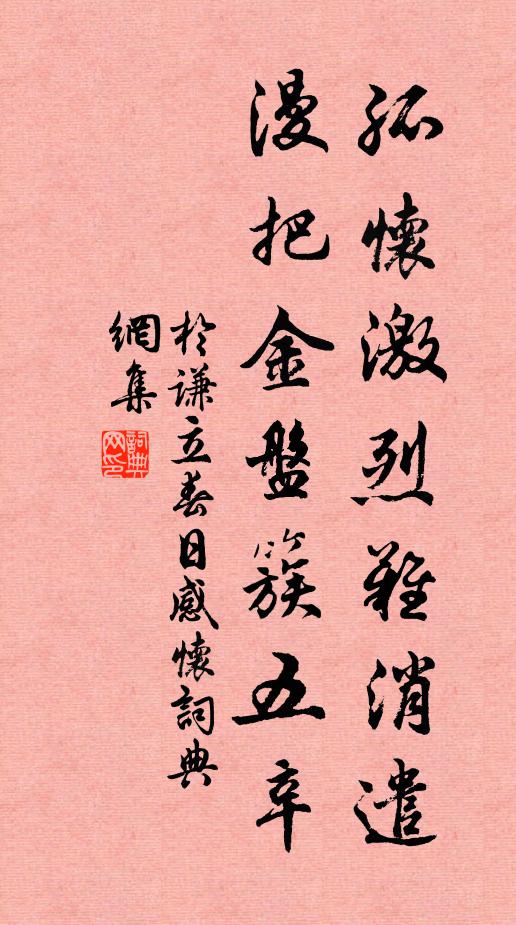 孤懷激烈難消遣
漫把金盤簇五辛
於謙立春日感懷詞典
網集
詞典
网印